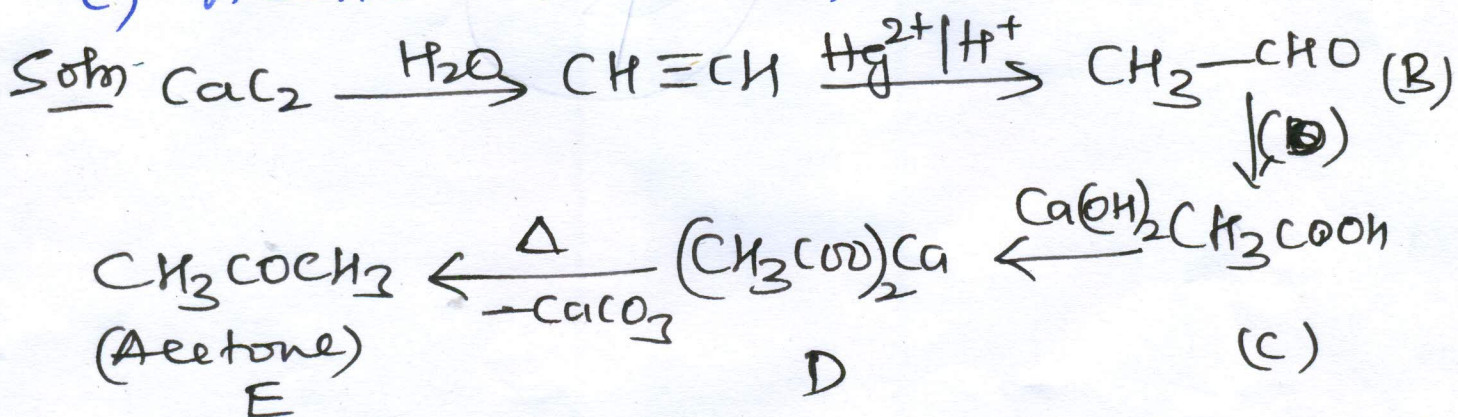 Soln CaC₂ —H₂O→ CH≡CH —Hg²⁺/H⁺→ CH₃—CHO (B)
↓( )
CH₃COCH₃ ←Δ −CaCO₃— (CH₃COO)₂Ca ←Ca(OH)₂— CH₃COOH
(Acetone) (C)
E D